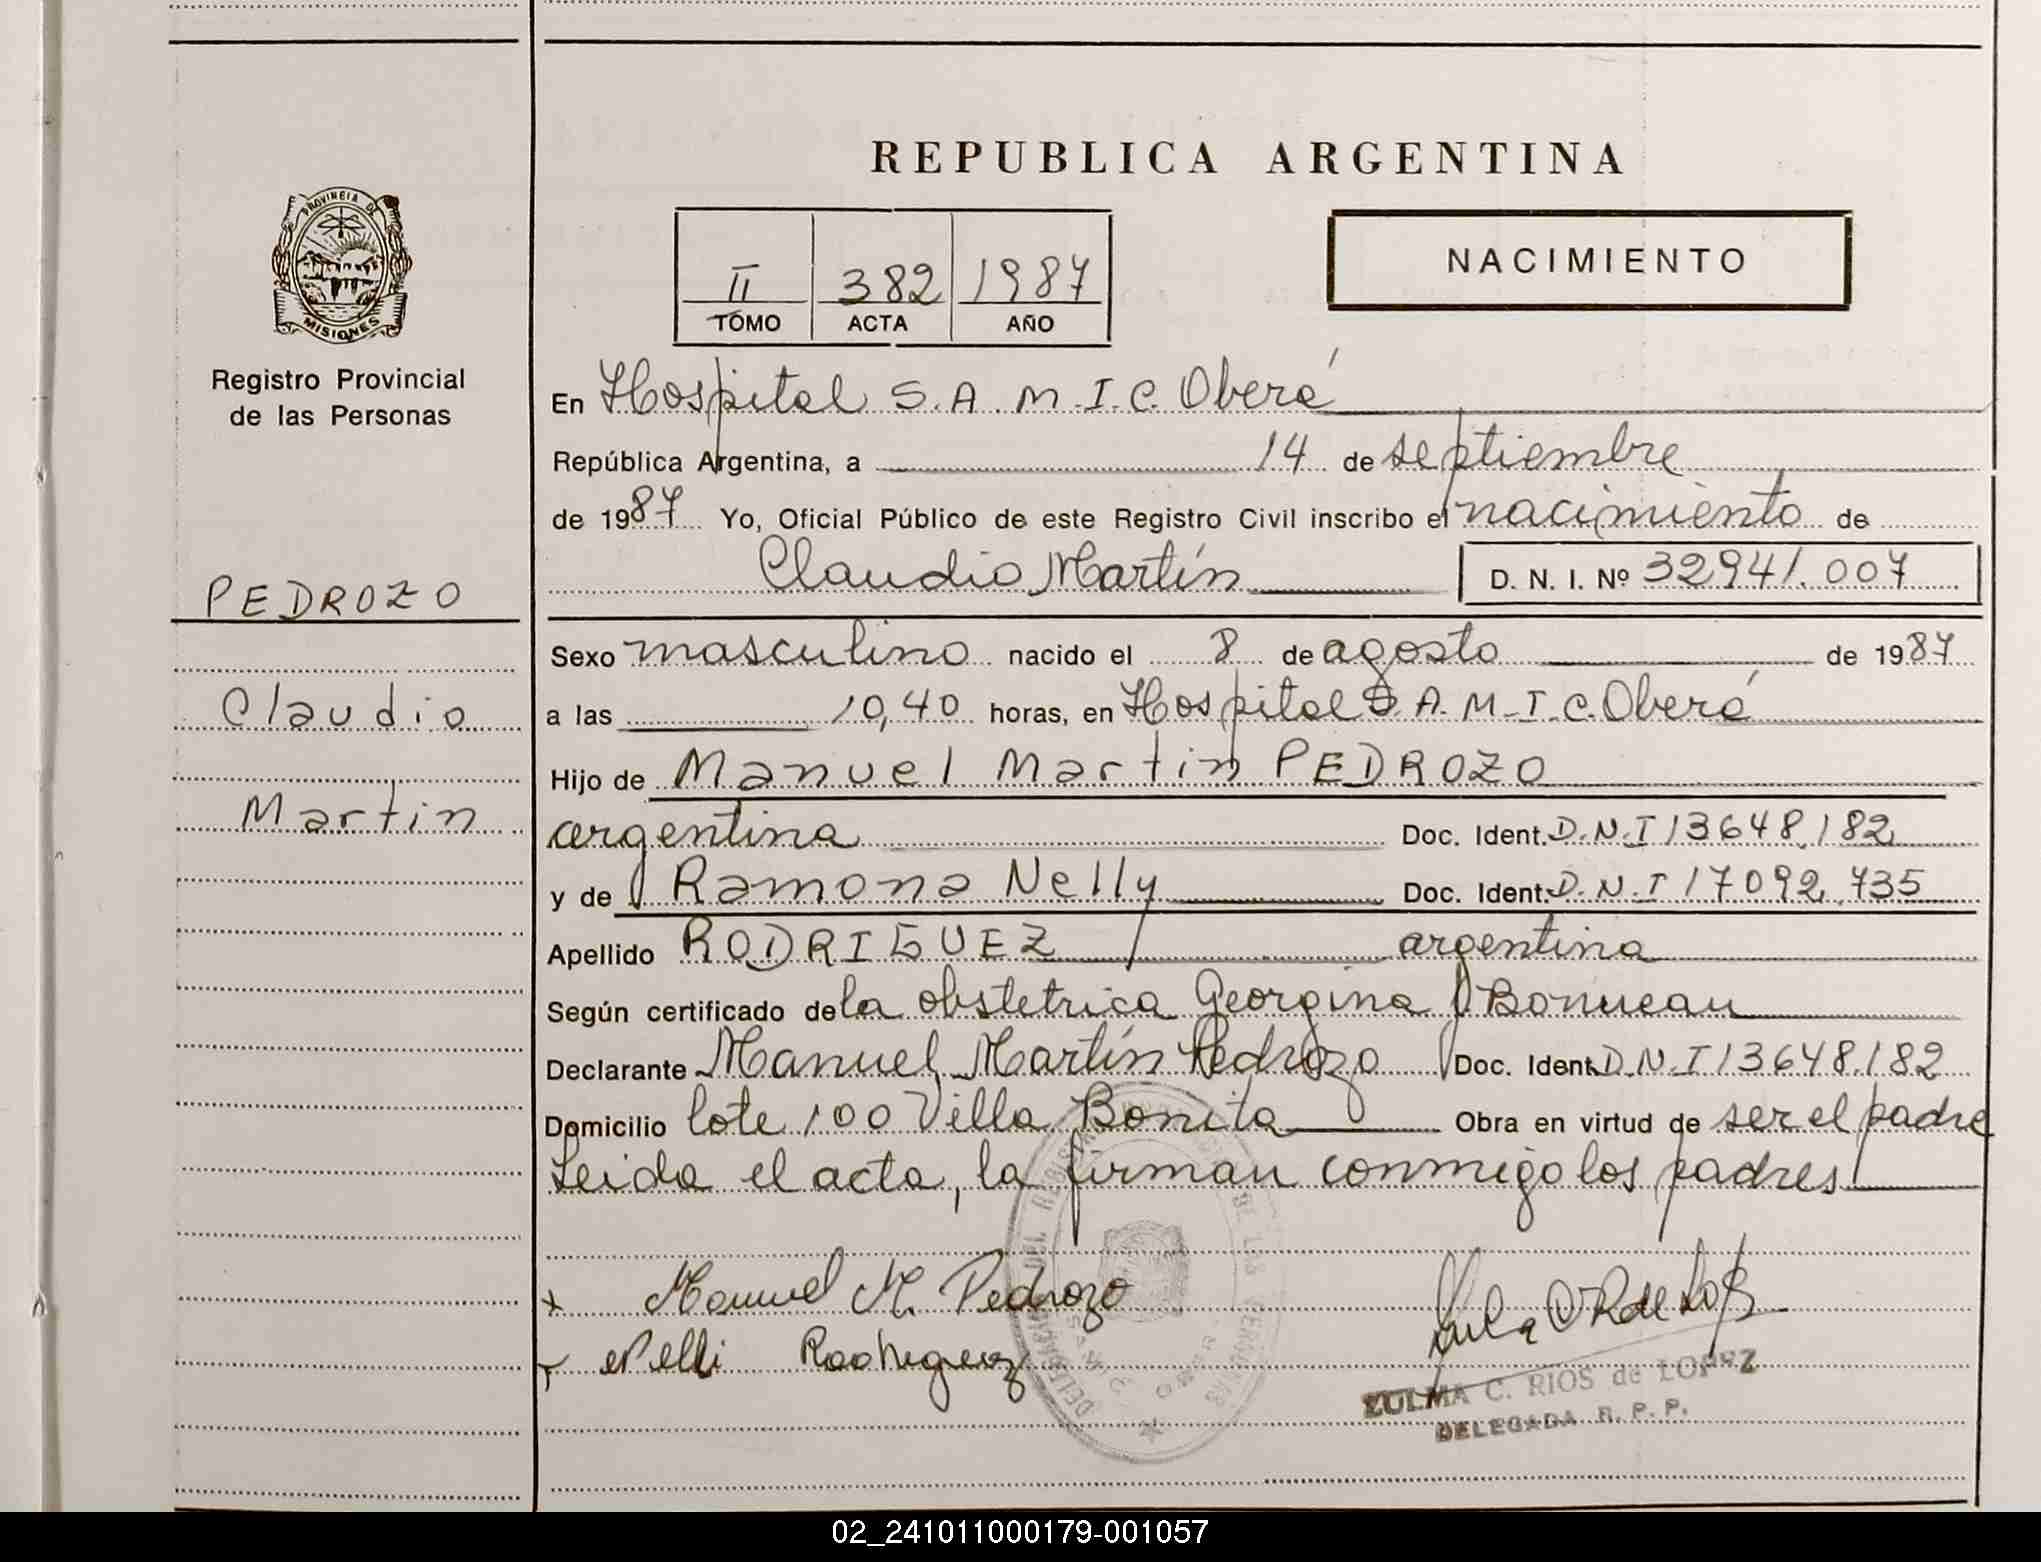 REPUBLICA ARGENTINA
PROVINCIA DE
MISIONES
Registro Provincial
de las Personas
II 382 1987
TOMO ACTA AÑO
NACIMIENTO
En Hospital S.A.M.I.C. Oberá
República Argentina, a 14 de septiembre
de 1987 Yo, Oficial Público de este Registro Civil inscribo el nacimiento de
Claudio Martín D. N. I. Nº 32941.007
PEDROZO
Claudio
Martin
Sexo masculino nacido el 8 de agosto de 1987
a las 10,40 horas, en Hospital S.A.M.I.C. Oberá
Hijo de Manuel Martin PEDROZO
argentina Doc. Ident. D.N.I 13648.182
y de Ramona Nelly Doc. Ident. D.N.I 17092.735
Apellido RODRIGUEZ argentina
Según certificado de la obstetrica Georgina Bonneau
Declarante Manuel Martín Pedrozo Doc. Ident. D.N.I 13648.182
Domicilio lote 100 Villa Bonita Obra en virtud de ser el padre
Leida el acta, la firman conmigo los padres
x Manuel M. Pedrozo
Nelli Rodriguez
ZULMA C. RIOS de LOPEZ
DELEGADA R. P. P.
02_241011000179-001057